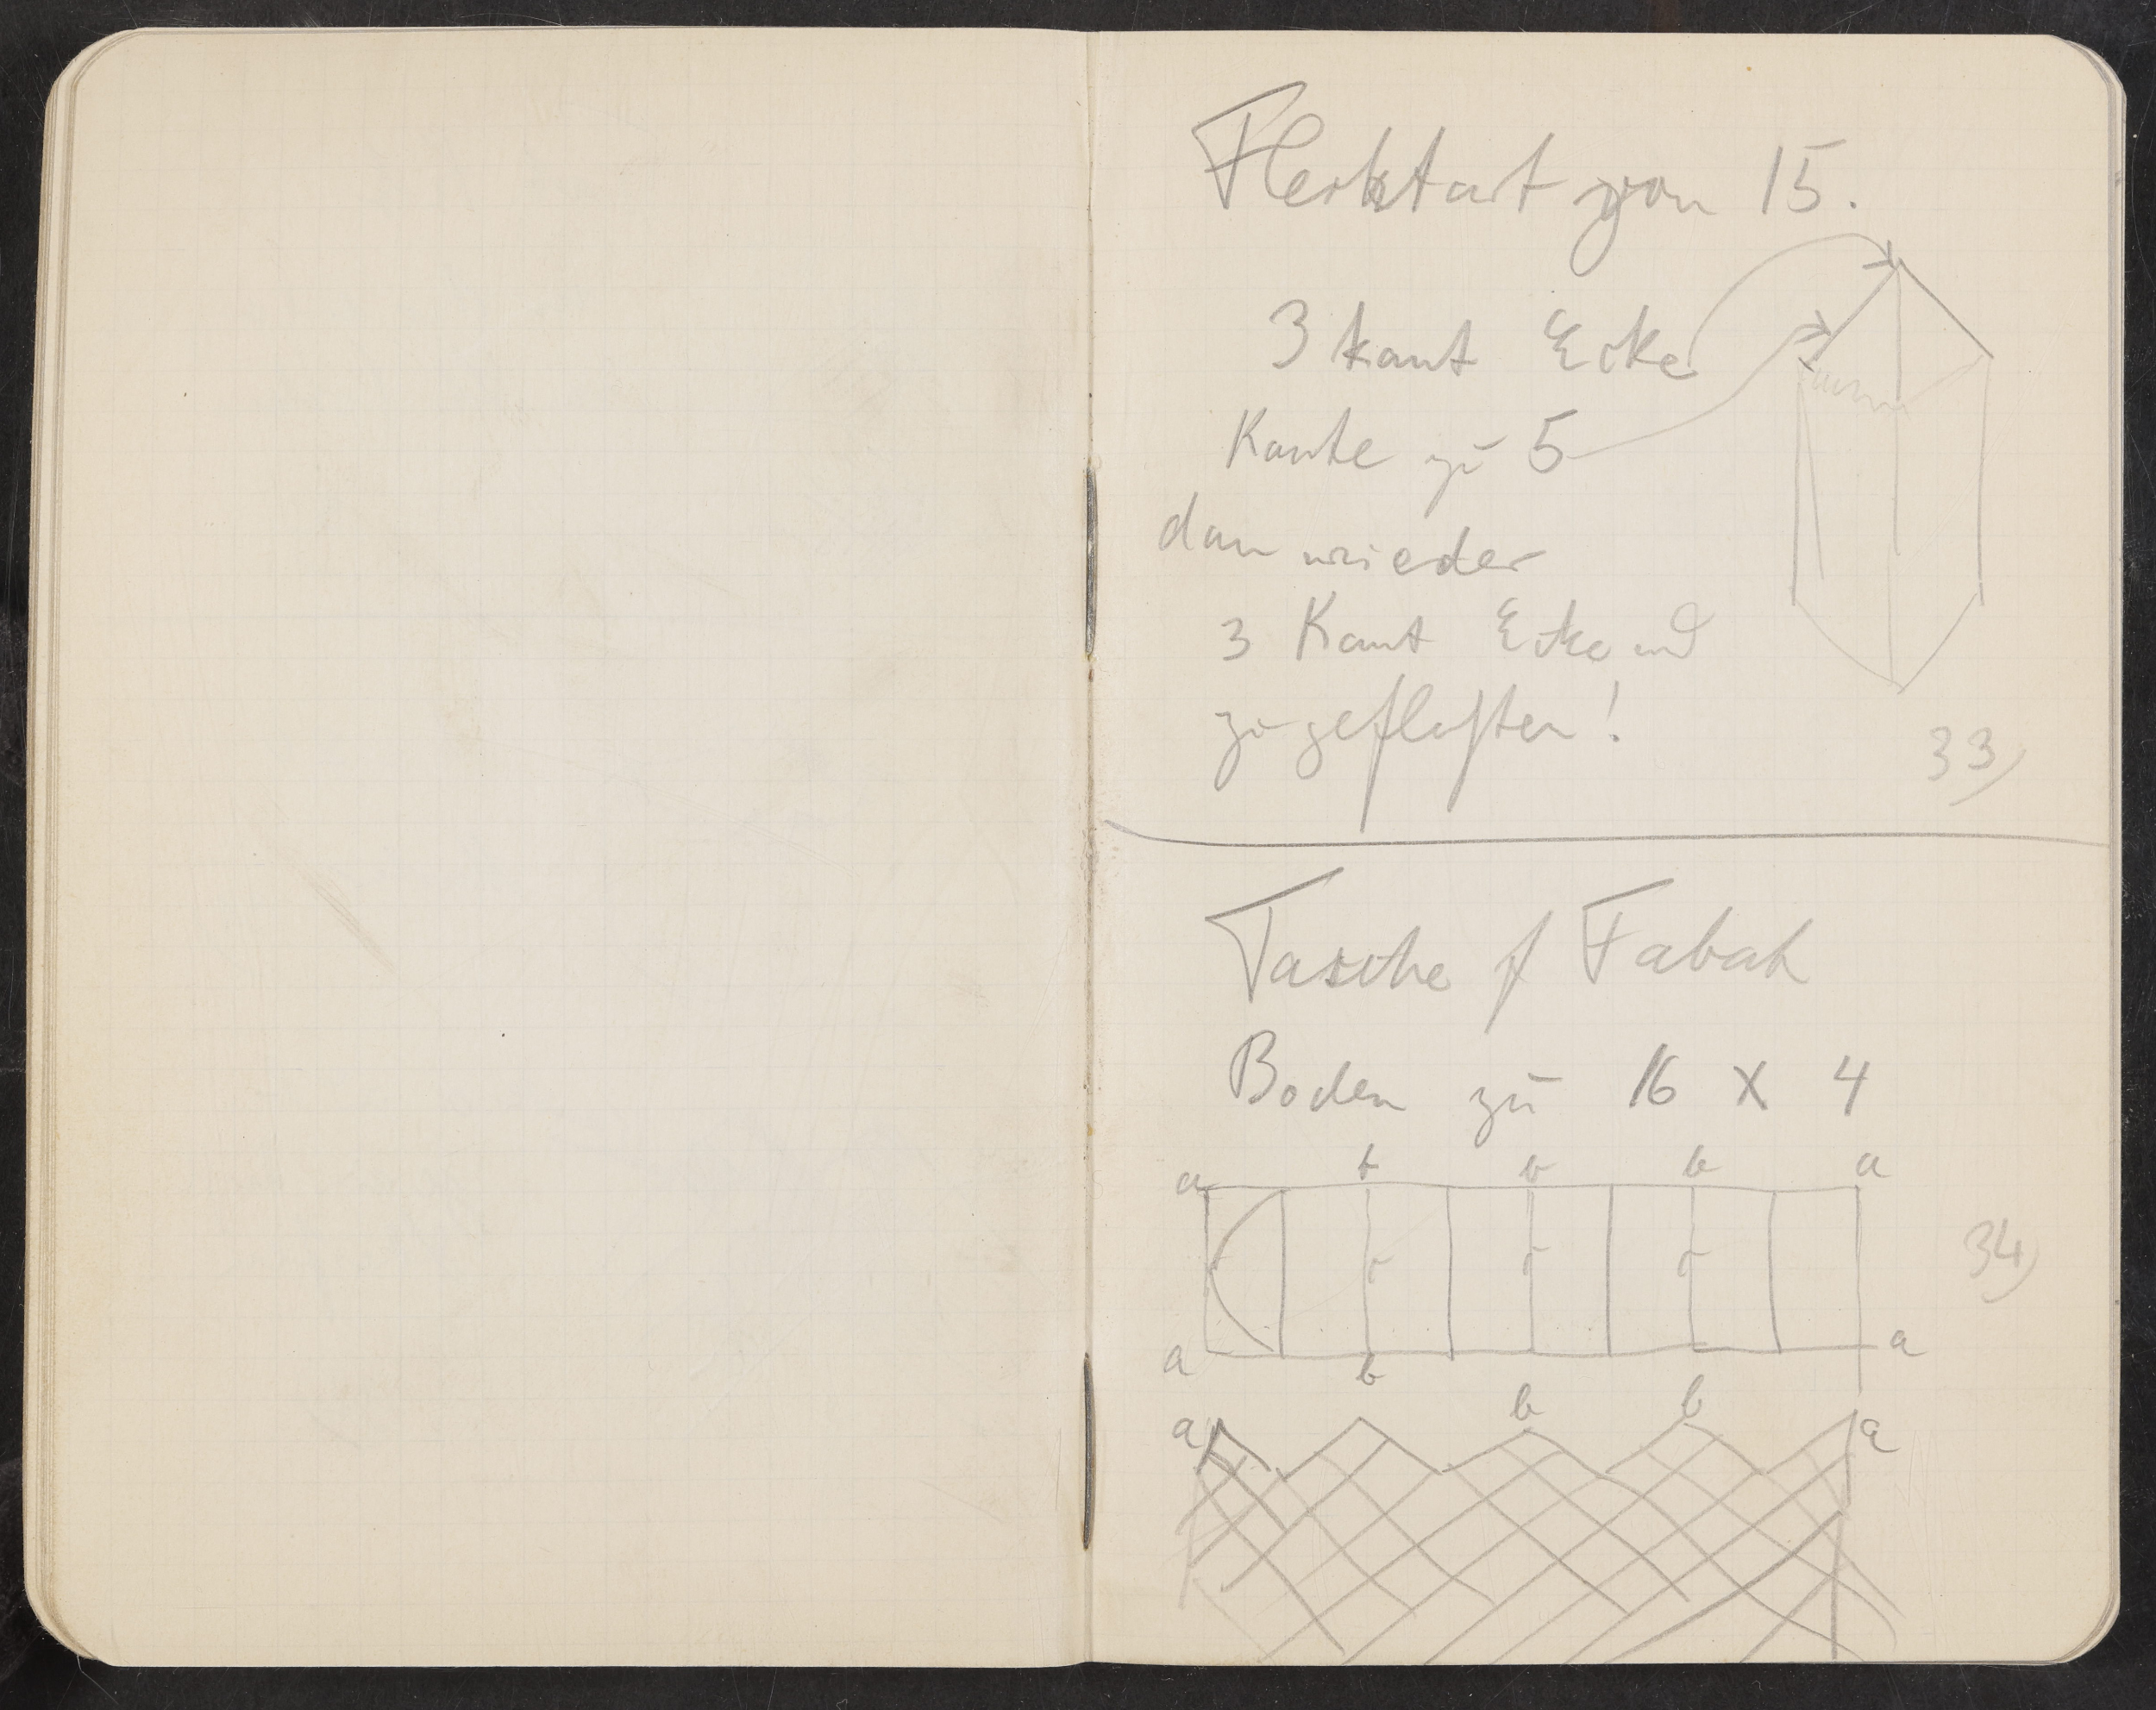 Flechtart von 15.
3 kant Ecke
Kante zu 5
dan wieder
3 Kant Ecke und
zugeflochten!
33)
Tasche f Tabak
Boden zu 16 x 4
a b b b a
34)
a b a
a b b a